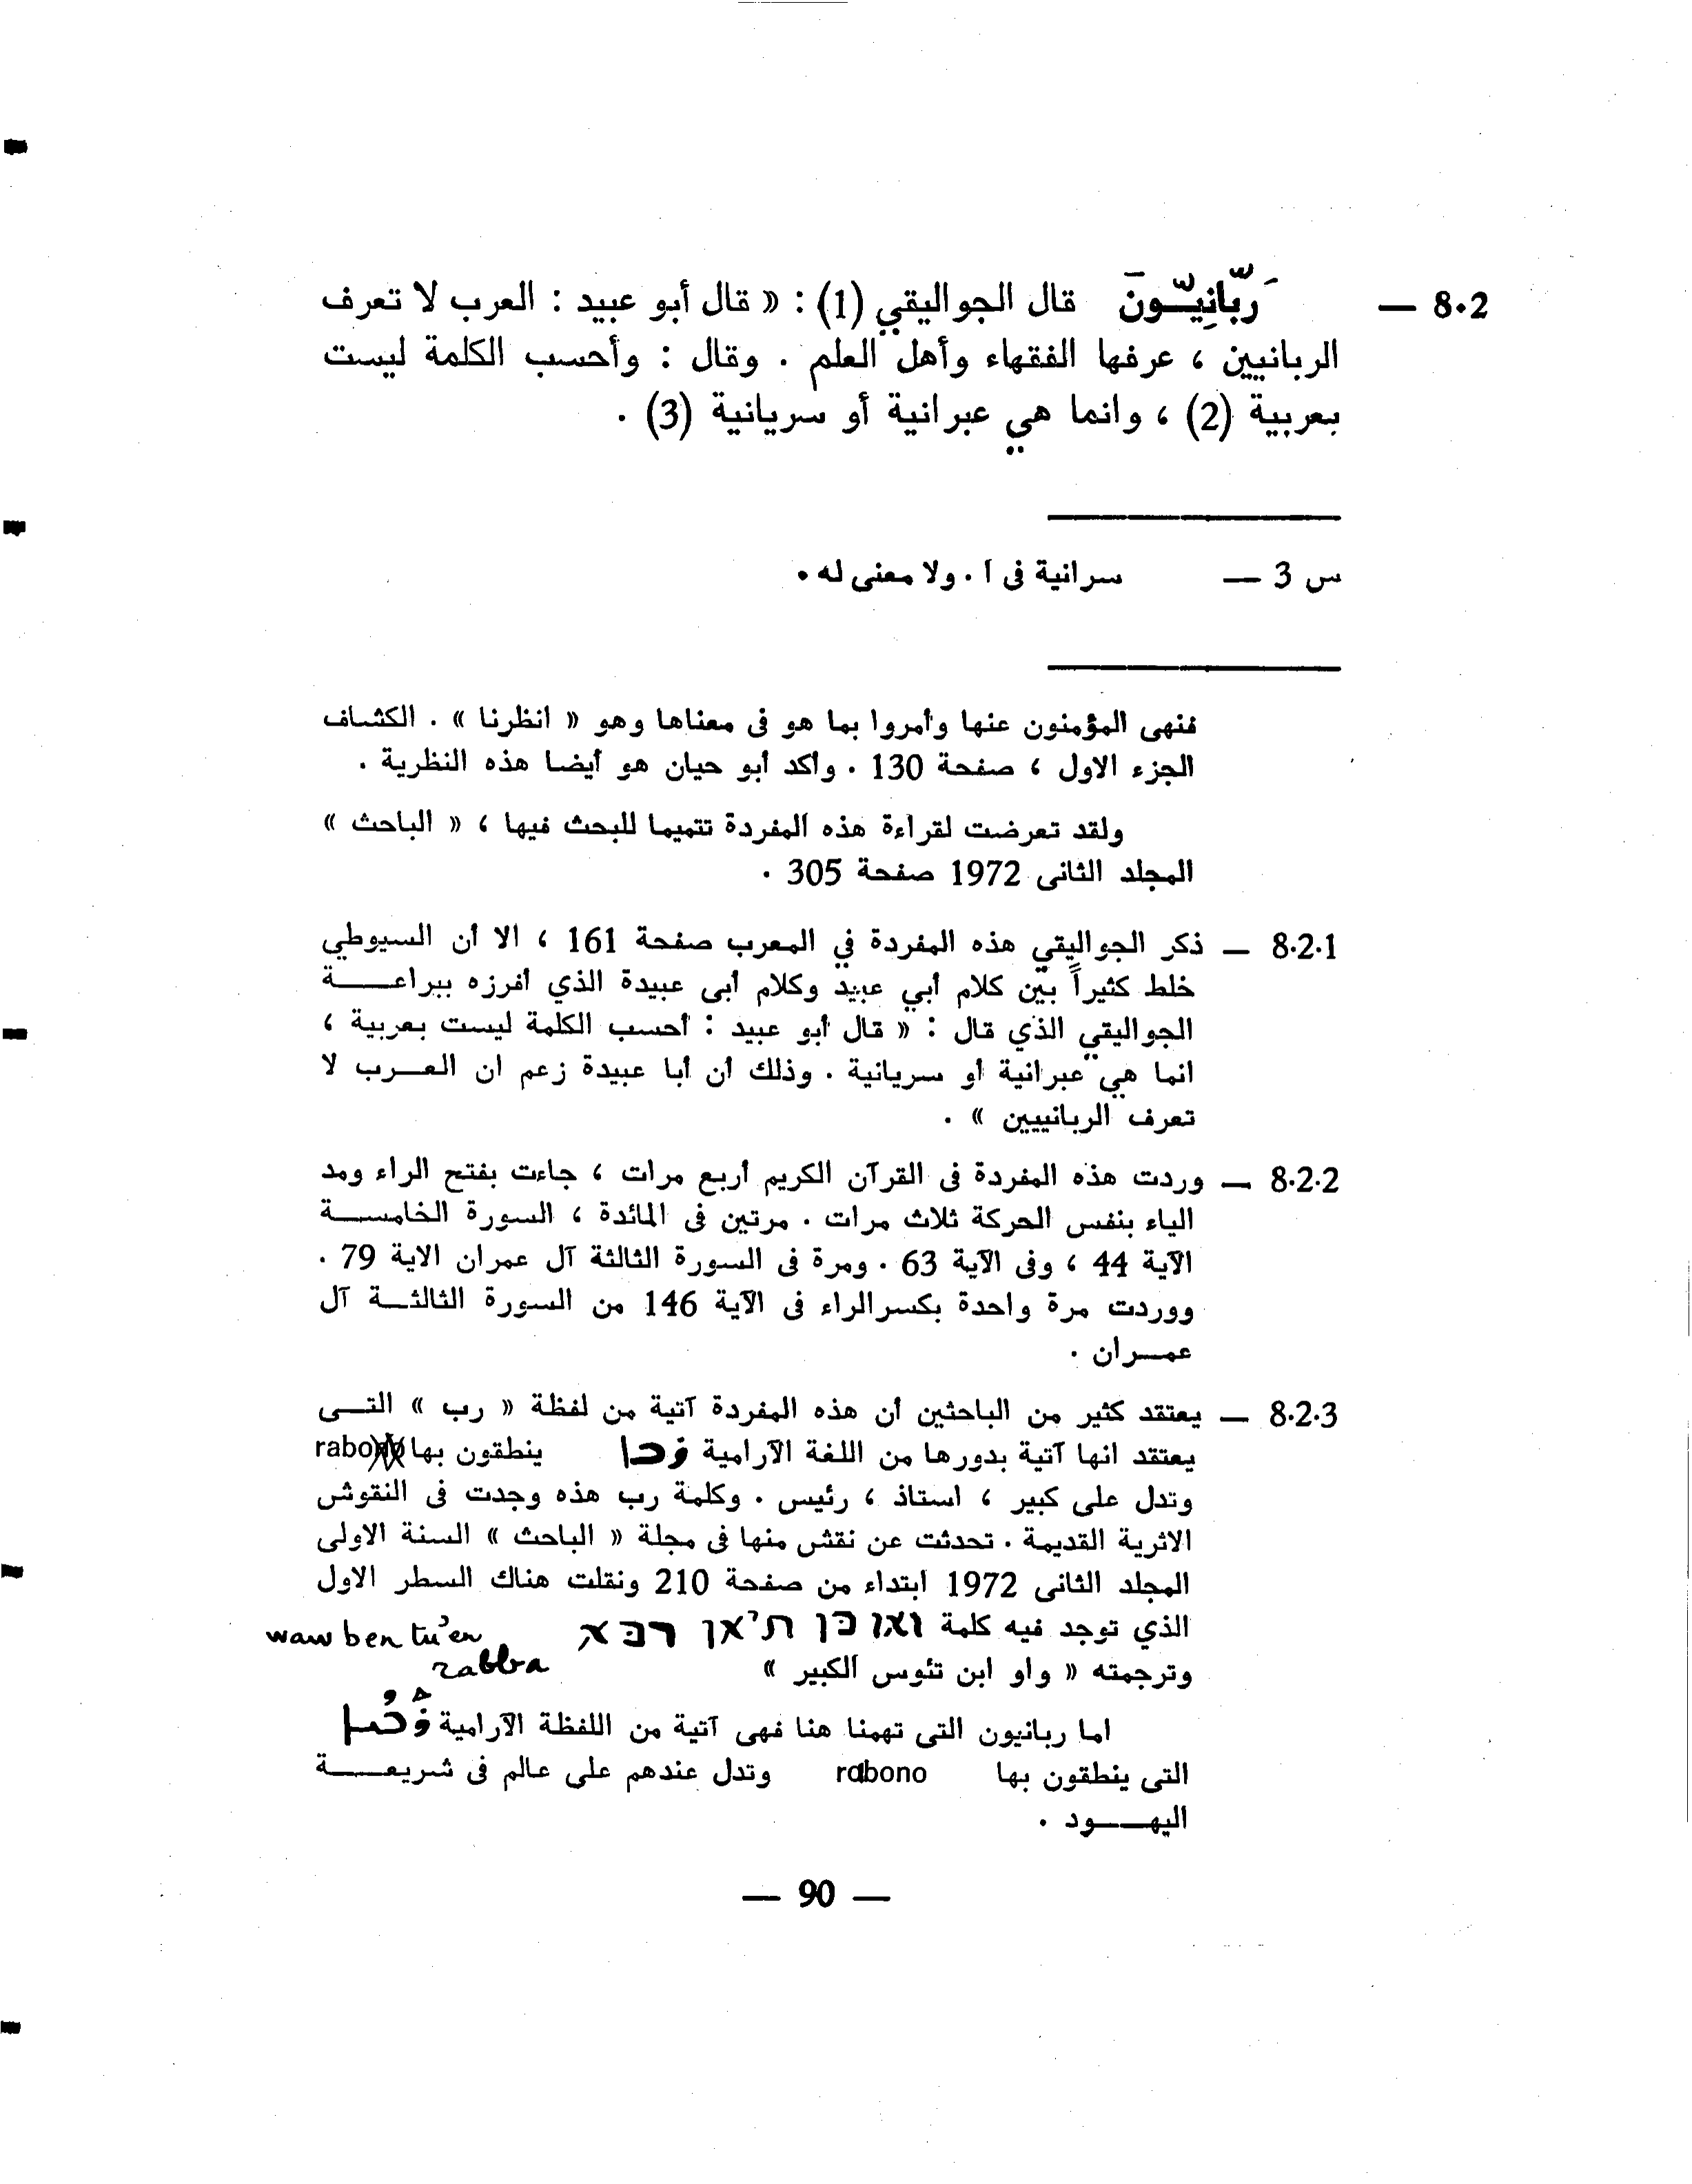 8.2 — رَبّانِيّـونَ قال الجواليقي (1) : « قال أبو عبيد : العرب لا تعرف
الربانيين ، عرفها الفقهاء وأهل العلم . وقال : وأحسب الكلمة ليست
بعربية (2) ، وانما هي عبرانية أو سريانية (3) .
س 3 — سرانية فى أ . ولا معنى له .
فنهى المؤمنون عنها وأمروا بما هو فى معناها وهو « انظرنا » . الكشاف
الجزء الاول ، صفحة 130 . وأكد أبو حيان هو أيضا هذه النظرية .
ولقد تعرضت لقراءة هذه المفردة تتميما للبحث فيها ، « الباحث »
المجلد الثانى 1972 صفحة 305 .
8.2.1 — ذكر الجواليقي هذه المفردة في المعرب صفحة 161 ، الا أن السيوطي
خلط كثيراً بين كلام أبي عبيد وكلام أبى عبيدة الذي أفرزه ببراعـــة
الجواليقي الذي قال : « قال أبو عبيد : أحسب الكلمة ليست بعربية ،
انما هي عبرانية أو سريانية . وذلك أن أبا عبيدة زعم ان العـــرب لا
تعرف الربانييين » .
8.2.2 — وردت هذه المفردة فى القرآن الكريم أربع مرات ، جاءت بفتح الراء ومد
الياء بنفس الحركة ثلاث مرات . مرتين فى المائدة ، السورة الخامســـة
الآية 44 ، وفى الآية 63 . ومرة فى السورة الثالثة آل عمران الاية 79 .
ووردت مرة واحدة بكسرالراء فى الآية 146 من السورة الثالثـــة آل
عمـــران .
8.2.3 — يعتقد كثير من الباحثين أن هذه المفردة آتية من لفظة « رب » التـــى
يعتقد انها آتية بدورها من اللغة الآرامية ܪܒܐ ينطقون بها rabo
وتدل على كبير ، استاذ ، رئيس . وكلمة رب هذه وجدت فى النقوش
الاثرية القديمة . تحدثت عن نقش منها فى مجلة « الباحث » السنة الاولى
المجلد الثانى 1972 ابتداء من صفحة 210 ونقلت هناك السطر الاول
الذي توجد فيه كلمة ואו בן ת'או רבא waw ben tu'en
rabba
وترجمته « واو ابن تئوس الكبير »
اما ربانيون التى تهمنا هنا فهى آتية من اللفظة الآرامية
التى ينطقون بها rabono وتدل عندهم على عالم فى شريعـــة
اليهـــود .
— 90 —